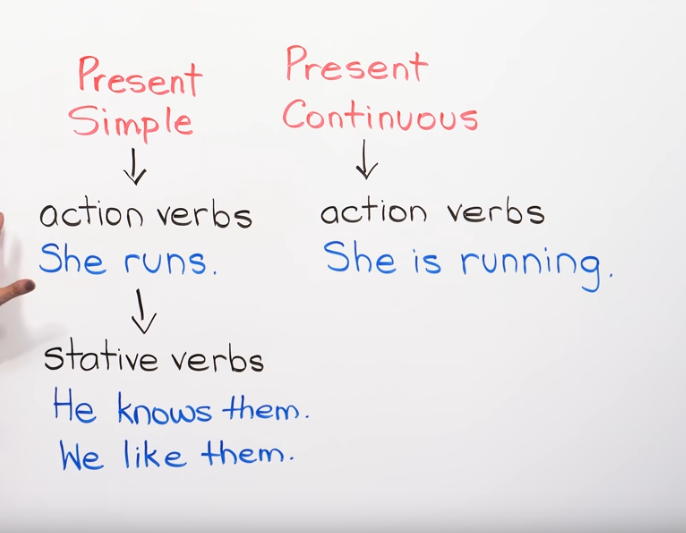 Present
Simple
action verbs
She runs.
stative verbs
He knows them.
We like them.
Present
Continuous
action verbs
She is running.